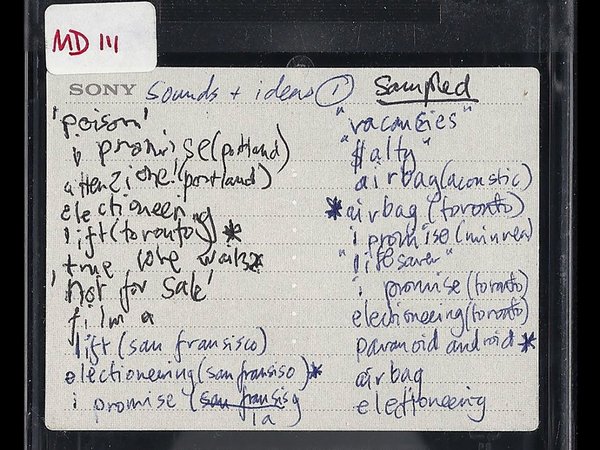 MD 111
SONY sounds + ideas ① sampled
'poison'
i promise (portland)
attenzione! (portland)
electioneering
lift (toronto) *
true love waits *
'not for sale'
f. i'm a
lift (san fransisco)
electioneering (san fransiso) *
i promise (san fransis
la
"vacancies"
"$alty"
airbag (acoustic)
*airbag (toronto)
i promise (minnea)
"lifesaver"
i promise (toronto)
electioneering (toronto)
paranoid android *
airbag
electioneering